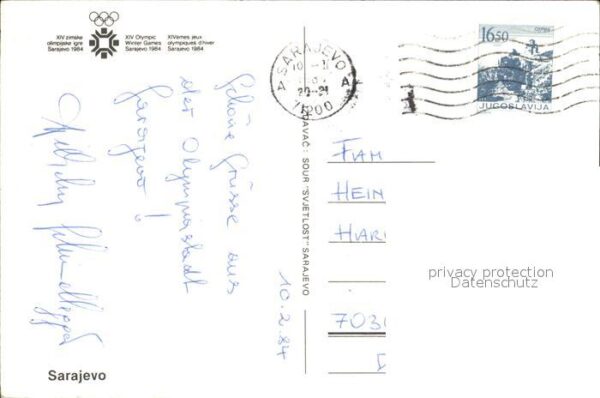 XIV zimske
olimpijske igre
Sarajevo 1984
XIV Olympic
Winter Games
Sarajevo 1984
XIVèmes jeux
olympiques d'hiver
Sarajevo 1984
SARAJEVO
A A
20-21
71200
1650
JUGOSLAVIJA
Schöne Grüsse aus
der Olympiastadt
Sarajevo!
10.2.84
IZDAVAČ: SOUR "SVJETLOST" SARAJEVO
FAM
HEIN
HAR
703
privacy protection
Datenschutz
Sarajevo